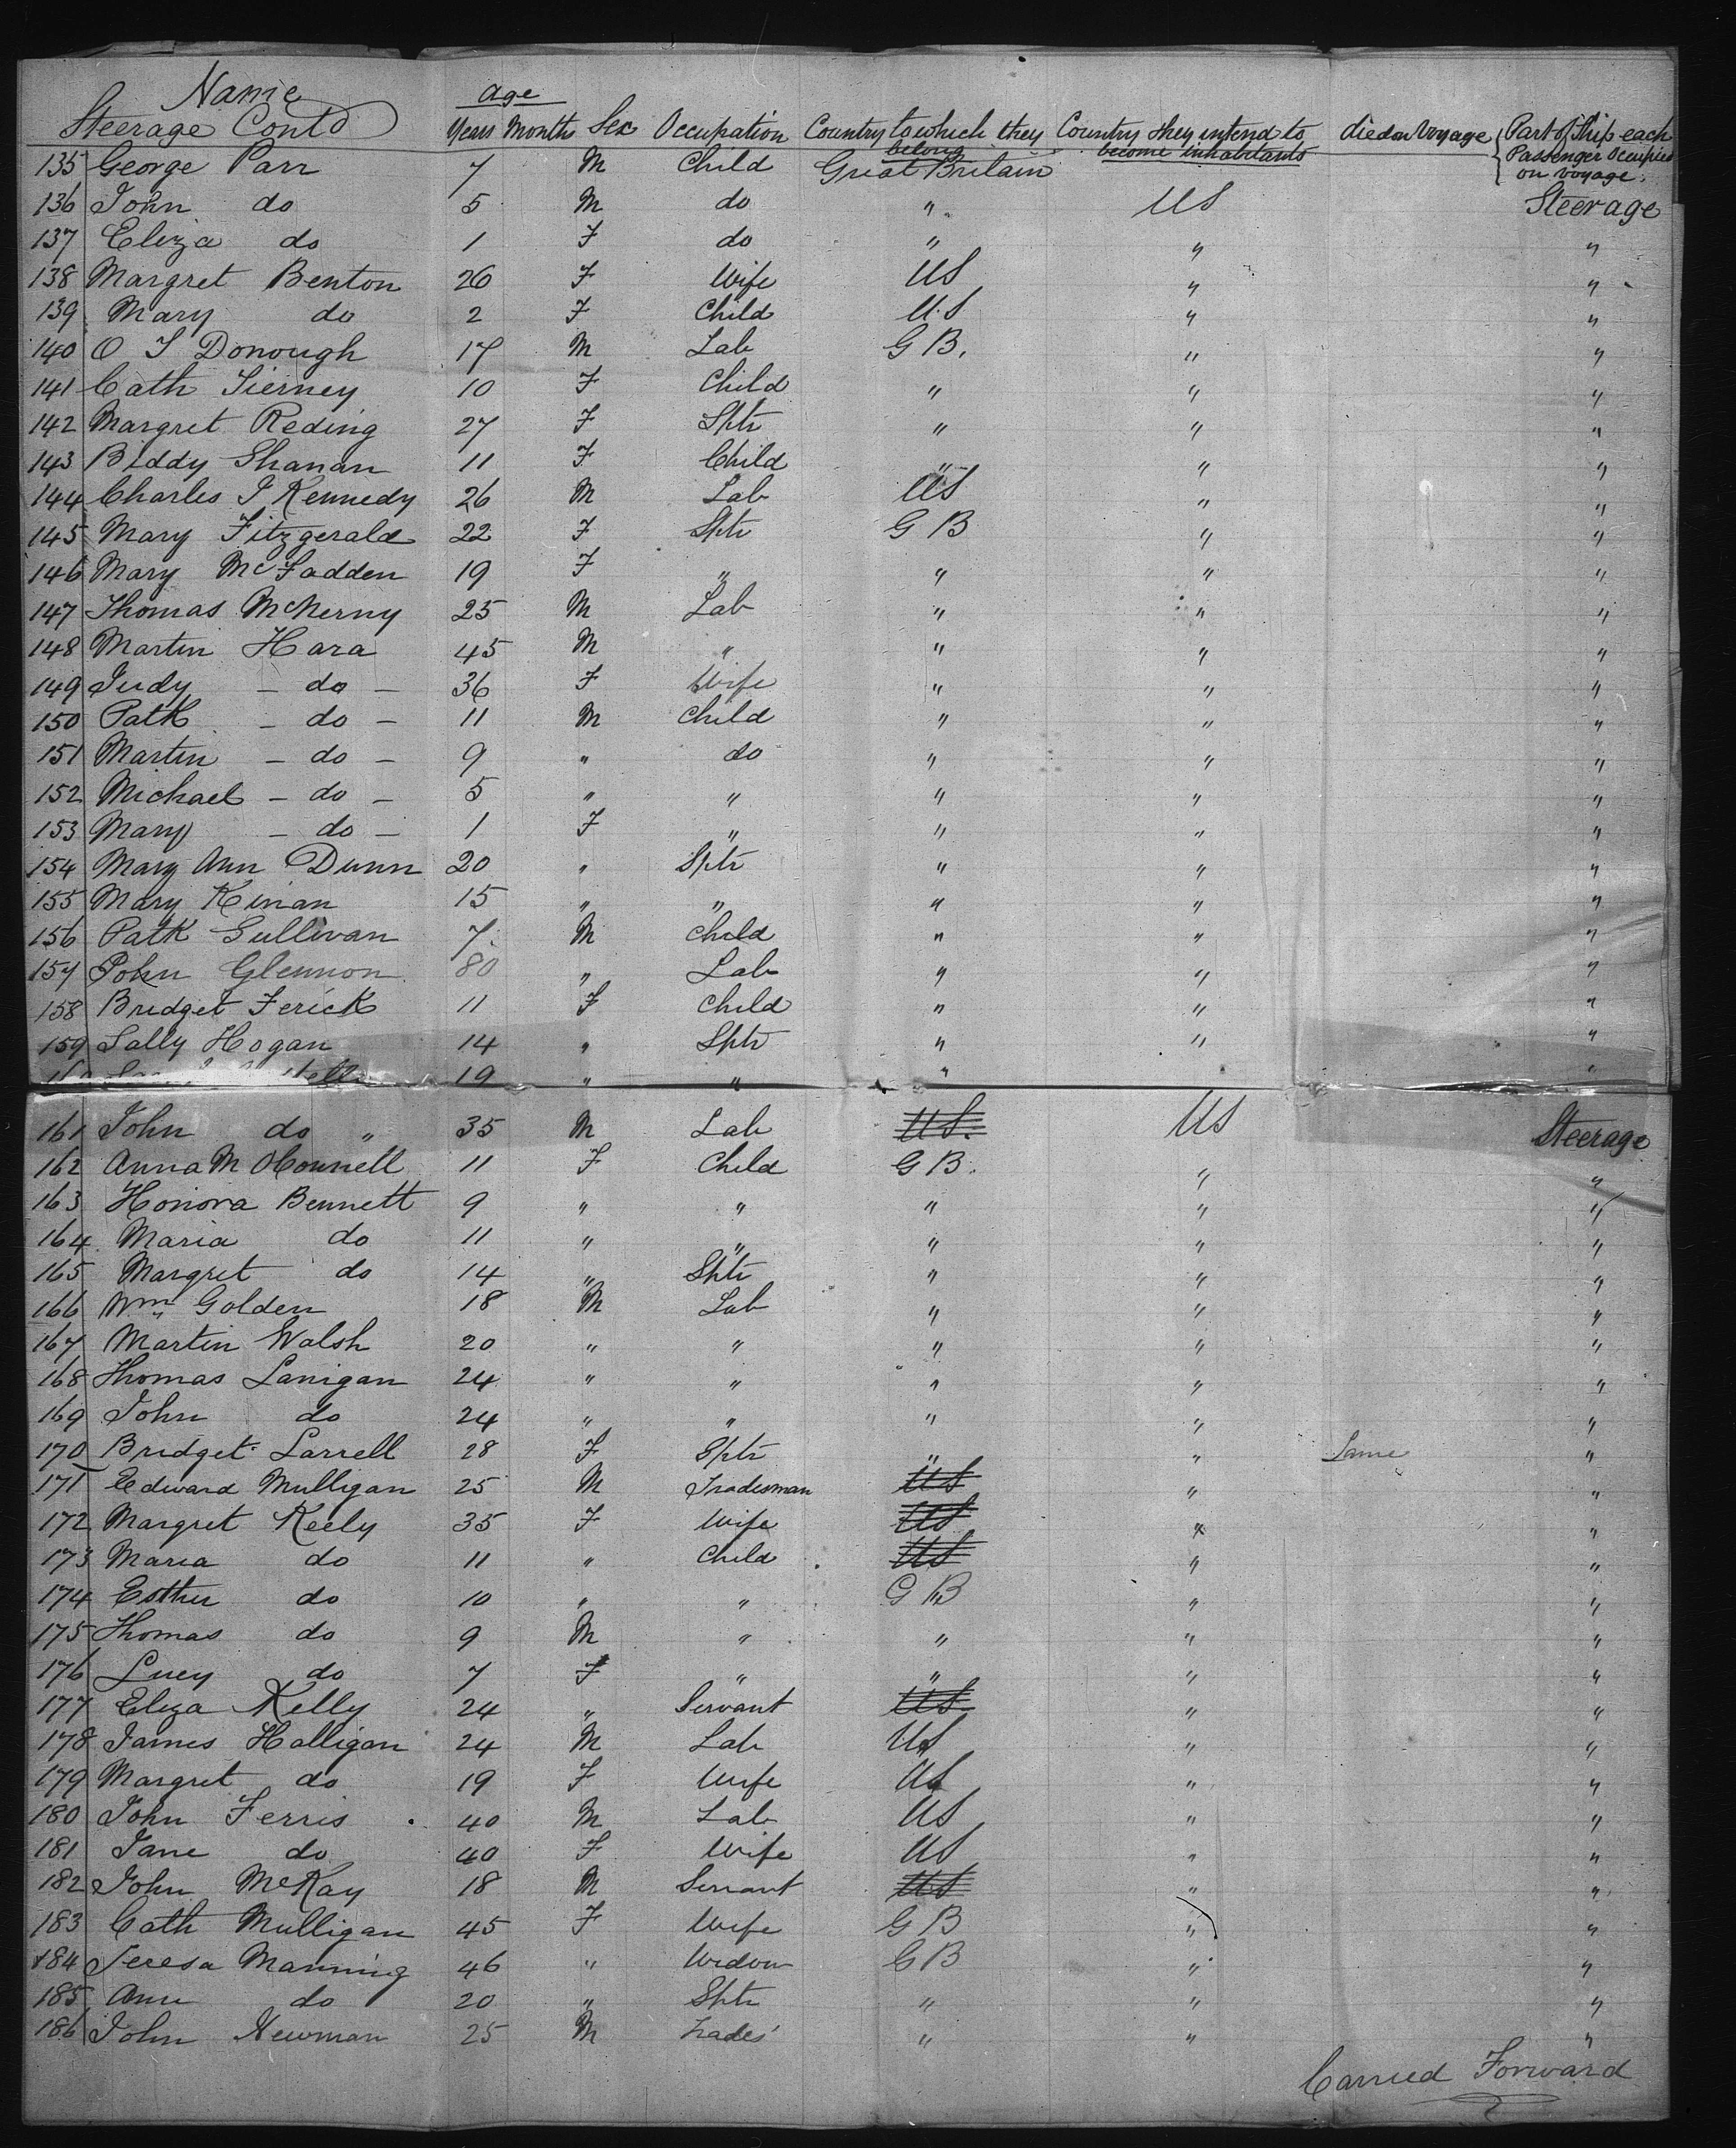 Name
Steerage Contd
Age
Years Months Sex Occupation Country to which they belong Country they intend to become inhabitants died on Voyage Part of Ship each Passenger Occupied on voyage.
135 George Parr 7 M Child Great Britain
136 John do 5 M do " US Steerage
137 Eliza do 1 F do " " "
138 Margret Benton 26 F Wife US " "
139 Mary do 2 F Child U.S " "
140 O J Donough 17 M Lab G B. " "
141 Cath Tierney 10 F Child " " "
142 Margret Reding 27 F Sptr " " "
143 Biddy Shanan 11 F Child " " "
144 Charles J Kennedy 26 M Lab US " "
145 Mary Fitzgerald 22 F Sptr G B " "
146 Mary McFadden 19 F " " " "
147 Thomas McNerny 25 M Lab " " "
148 Martin Hara 45 M " " " "
149 Judy - do - 36 F Wife " " "
150 Patk - do - 11 M Child " " "
151 Martin - do - 9 " do " " "
152 Michael - do - 5 " " " " "
153 Mary - do - 1 F " " " "
154 Mary Ann Dunn 20 " Sptr " " "
155 Mary Kinan 15 " " " " "
156 Patk Sullivan 7. M Child " " "
157 John Glennon 80 " Lab " " "
158 Bridget Ferick 11 F Child " " "
159 Sally Hogan 14 " Sptr " " "
19 " " " "
161 John do " 35 M Lab US. US Steerage
162 Anna M OConnell 11 F Child G B. " "
163 Honora Bennett 9 " " " " "
164 Maria do 11 " " " " "
165 Margret do 14 " Sptr " " "
166 Wm Golden 18 M Lab " " "
167 Martin Walsh 20 " " " " "
168 Thomas Lanigan 24 " " " " "
169 John do 24 " " " " "
170 Bridget Larrell 28 F Sptr " " "
171 Edward Mulligan 25 M Tradesman US " "
172 Margret Keely 35 F Wife US " "
173 Maria do 11 " Child US " "
174 Esther do 10 " " G B " "
175 Thomas do 9 M " " " "
176 Lucy do 7 F " " " "
177 Eliza Kelly 24 " Servant US " "
178 James Halligan 24 M Lab US " "
179 Margret do 19 F Wife US " "
180 John Ferris 40 M Lab US " "
181 Jane do 40 F Wife US " "
182 John McKay 18 M Servant US " "
183 Cath Mulligan 45 F Wife G B " "
184 Teresa Manning 46 " Widow G B " "
185 Ann do 20 " Sptr " " "
186 John Newman 25 M Trades' " " "
Carried Forward